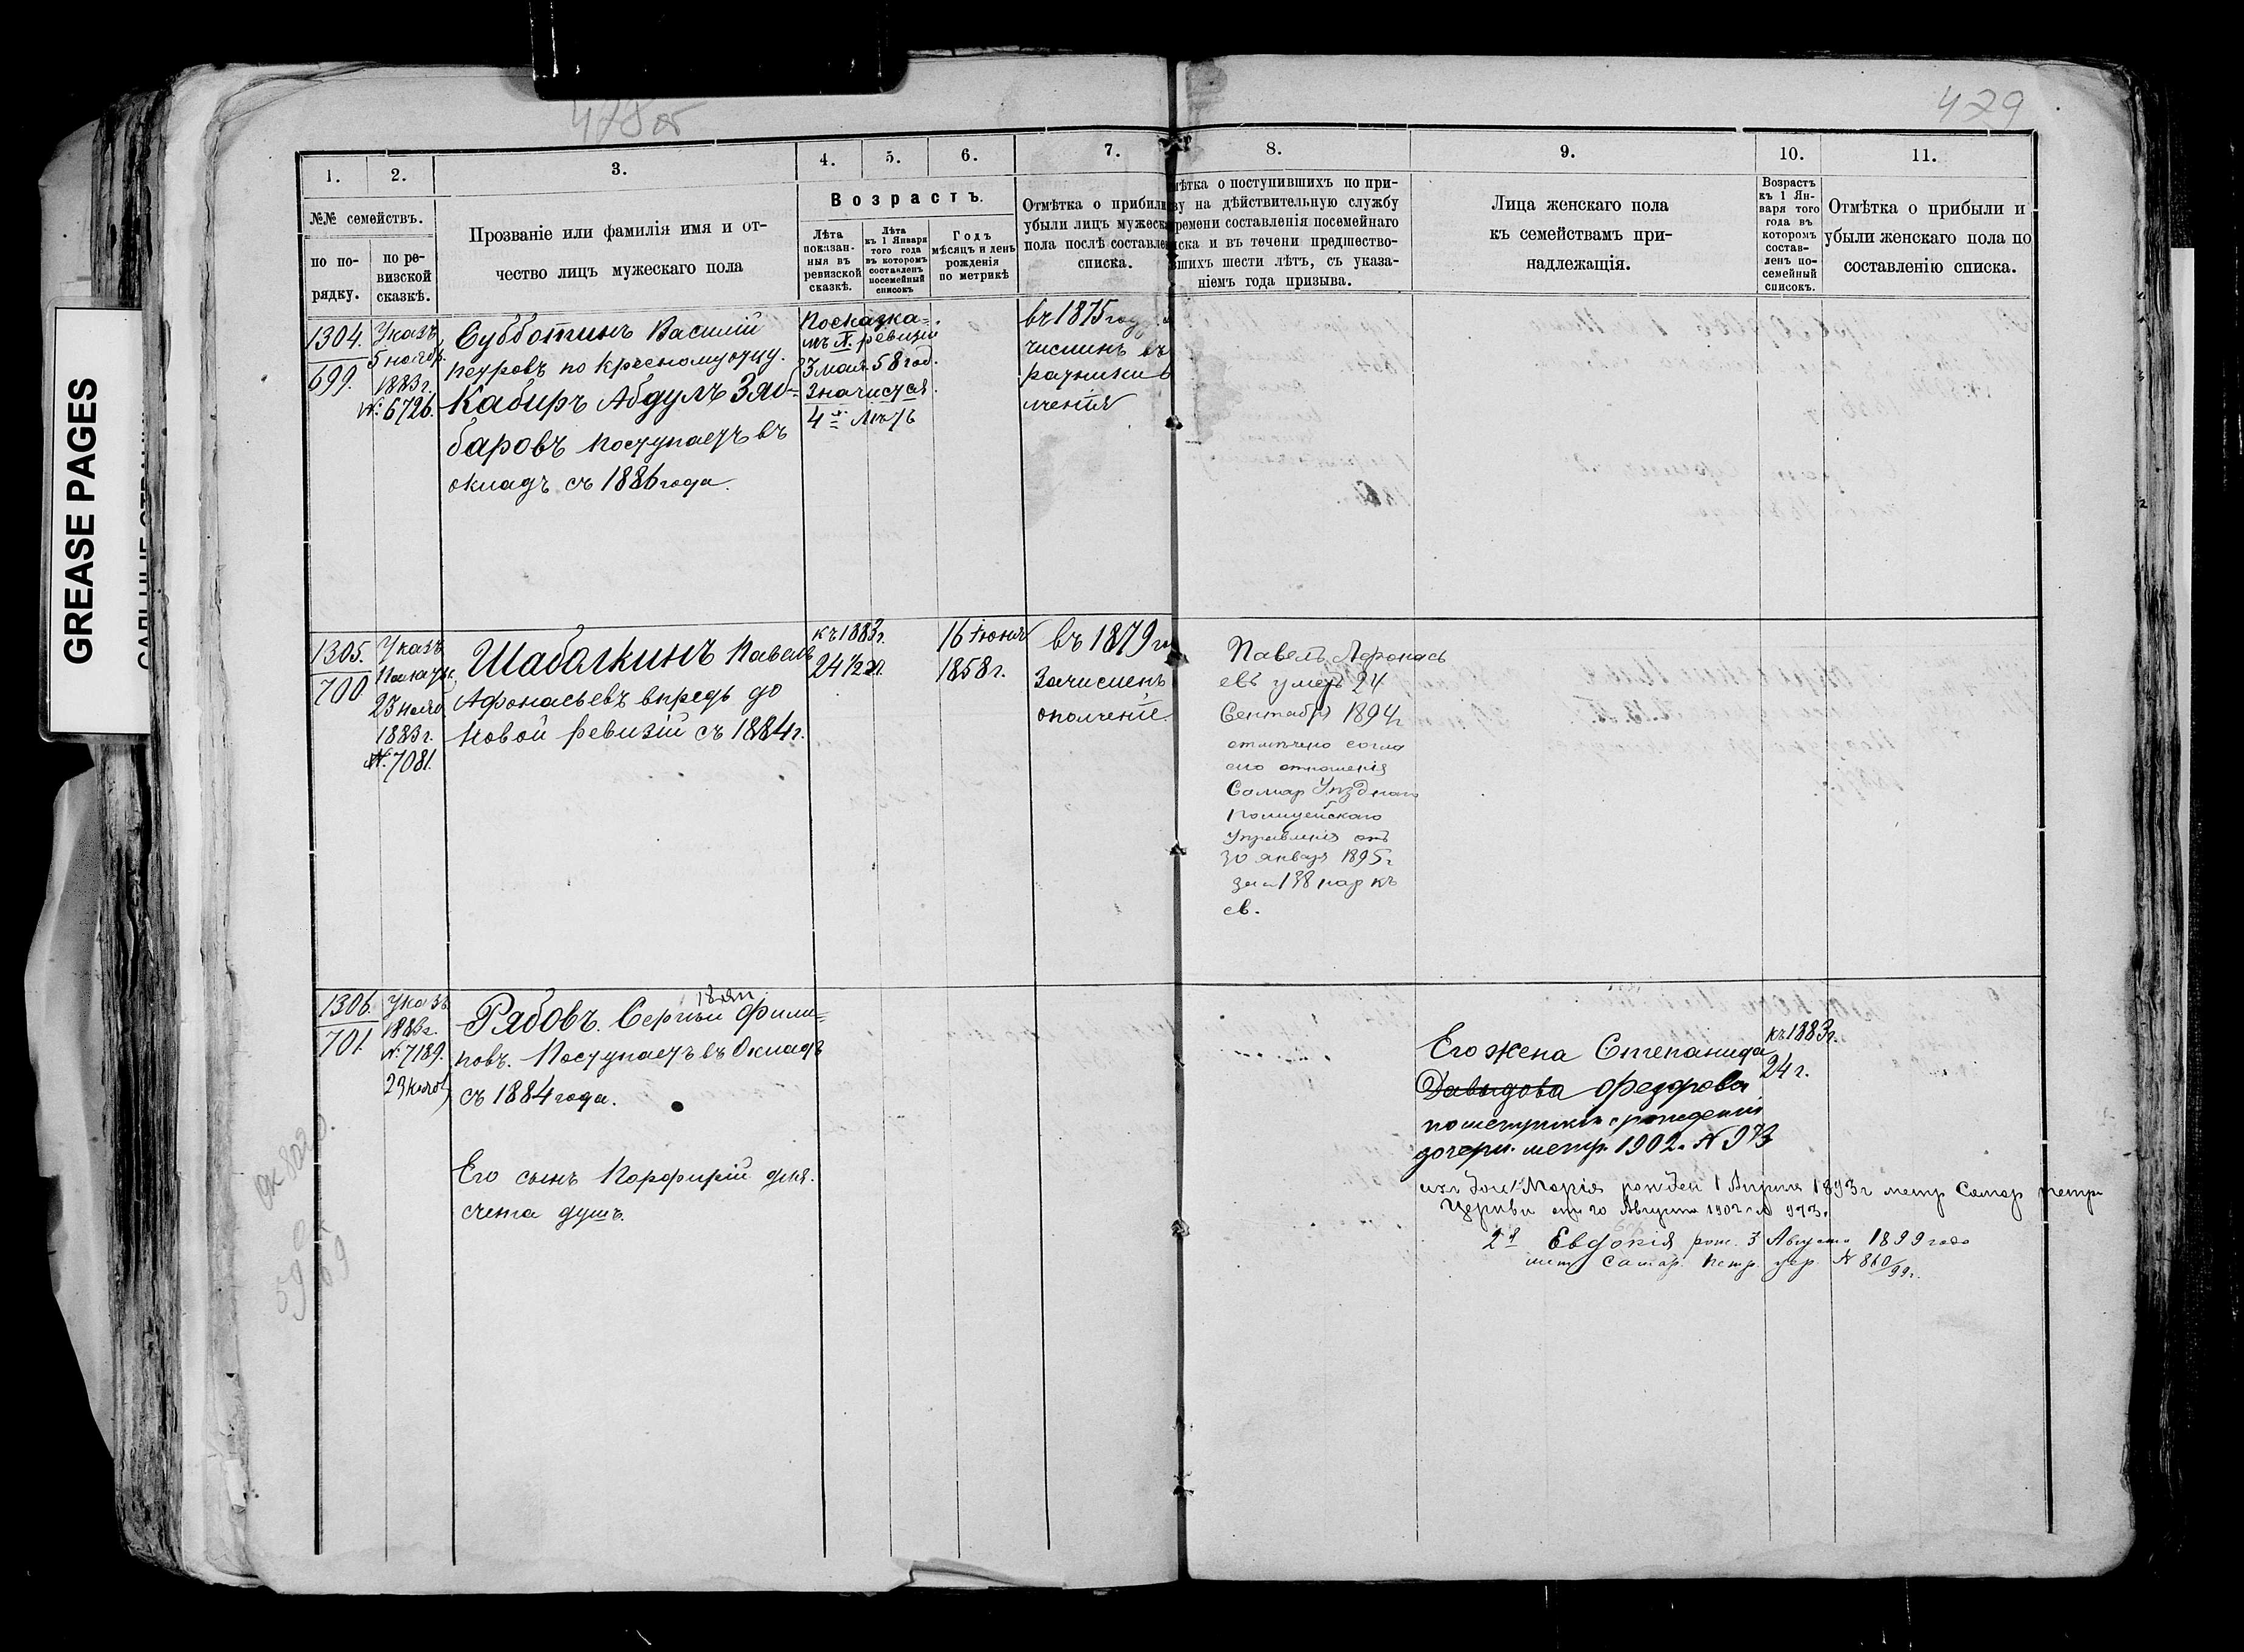 478 об
429
GREASE PAGES
1.
2.
3.
4.
5.
6.
7.
8.
9.
10.
11.
№№ семействъ.
по по-
рядку.
по ре-
визской
сказкѣ.
Прозваніе или фамилія имя и от-
чество лицъ мужескаго пола
Возрастъ.
Лѣта
показан-
ныя въ
ревизской
сказкѣ.
Лѣта
къ 1 Января
того года
въ которомъ
составленъ
посемейный
списокъ
Годъ
мѣсяцъ и день
рожденія
по метрикѣ
Отмѣтка о прибыли
убыли лицъ мужеск
пола послѣ составле
списка.
мѣтка о поступившихъ по при-
ву на дѣйствительную службу
времени составленія посемейнаго
иска и въ теченіи предшество-
вшихъ шести лѣтъ, съ указа-
ніемъ года призыва.
Лица женскаго пола
къ семействамъ при-
надлежащія.
Возрастъ
къ 1 Ян-
варя того
года въ
которомъ
состав-
ленъ по-
семейный
списокъ.
Отмѣтка о прибыли и
убыли женскаго пола по
составленію списка.
1304.
699.
Указъ
5 ноябр.
1883г.
№ 6726.
Субботинъ Василій
Петровъ по кресному отцу.
Кабиръ Абдулъ Зяб-
баровъ поступаетъ въ
окладъ съ 1886 года.
По сказка-
мъ X. ревизіи
3 мая 58 год.
Значится
4хъ лѣтъ
въ 1875 год
числинъ въ
ратники о
лченія
1305.
700
Указъ
Палаты
23 нояб.
1883г.
№ 7081.
Шабалкинъ Павелъ
Афонасьевъ впредь до
Новой ревизіи съ 1884г.
къ 1883г.
24 1/2 л.
16 Іюня
1858 г.
въ 1879 го
Зачисленъ
ополченіе.
Павелъ Афонась
евъ умеръ 24
Сентября 1894г
отмѣчено согла
сно отношенія
Самар Уѣзднаго
Полицейскаго
Управленія отъ
30 января 1895г
св.
1306.
701.
Указъ
1883г.
№ 7189.
23 нояб
Рябовъ. Сергѣй Фили-
повъ. Поступаетъ въ Окладъ
съ 1884 года.
Его сынъ Порфирій для.
счета душъ.
Его жена Степанида
Давыдова Федорова
по метрикѣ о рожденіи
дочери. метр. 1902г. № 973
къ 1883г.
24 г.
ихъ доч: Марія рожден 1 Апрѣля 1893г метр Самар петр
Церкви отъ 20 Августа 1902г № 973.
2я Евдокія рож. 3 Августа 1899 года
метр Самар. Петр. цер. № 860/99г.